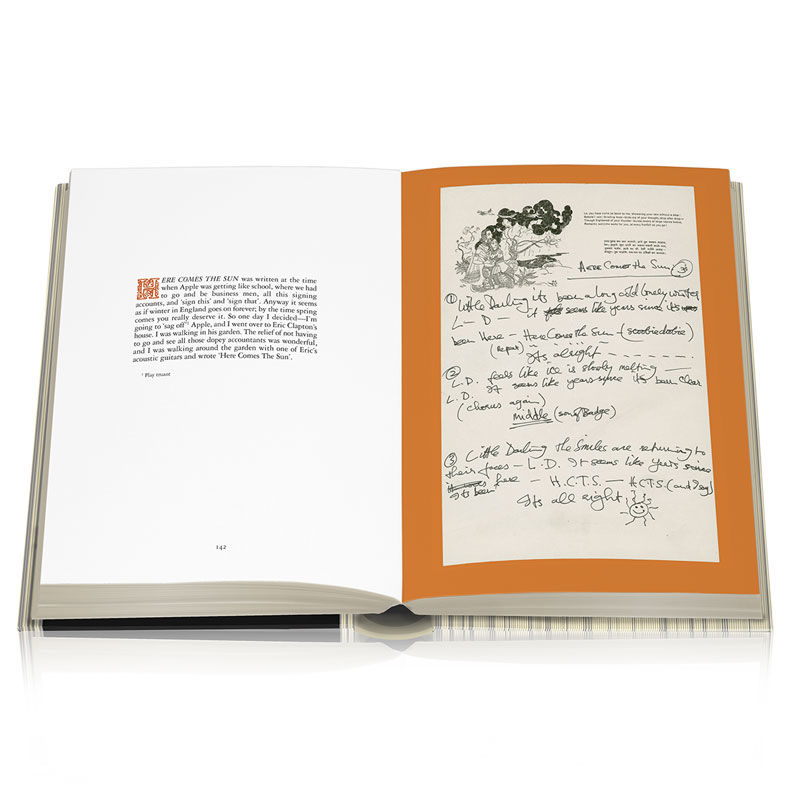 HERE COMES THE SUN was written at the time
when Apple was getting like school, where we had
to go and be business men, all this signing
accounts, and 'sign this' and 'sign that'. Anyway it seems
as if winter in England goes on forever; by the time spring
comes you really deserve it. So one day I decided—I'm
going to 'sag off'¹ Apple, and I went over to Eric Clapton's
house. I was walking in his garden. The relief of not having
to go and see all those dopey accountants was wonderful,
and I was walking around the garden with one of Eric's
acoustic guitars and wrote 'Here Comes The Sun'.
¹ Play truant
142
HERE Comes the Sun
① Little Darling its been a long cold lonely winter
L – D – it seems like years since its
been Here – Here Comes the Sun – (scoobie dobie)
(repeat) Its alright
② L.D. feels like ice is slowly melting
L.D. It seems like years since its been clear
(chorus again)
middle (son of Badge)
③ Little Darling the Smiles are returning to
their faces – L.D. It seems like years since
its been here – H.C.T.S. – H.C.T.S. (and I say)
Its all right